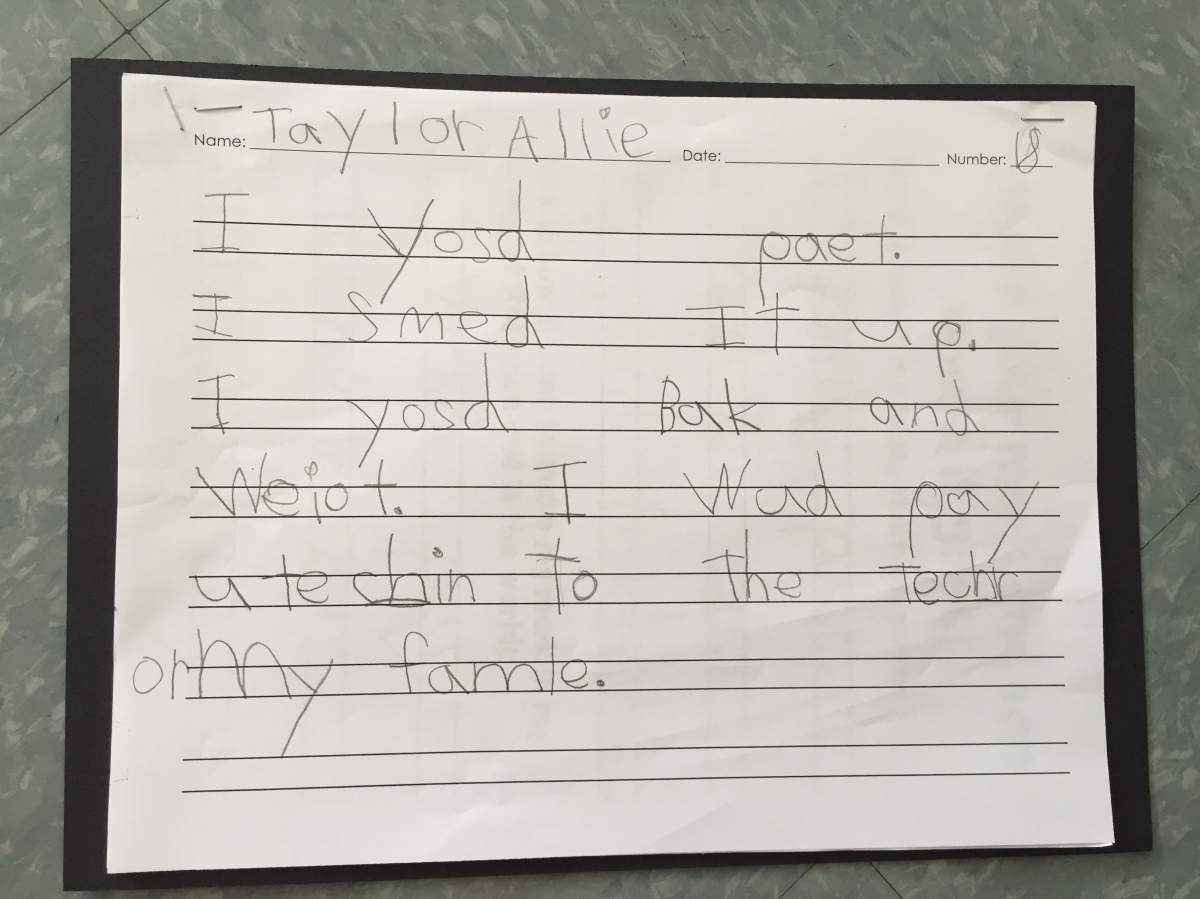 Name: Taylor Allie Date: Number: 18
I yosd paet.
I smed It up.
I yosd Bak and
Weiot. I Wud pay
utechin To The Techr
or My famle.